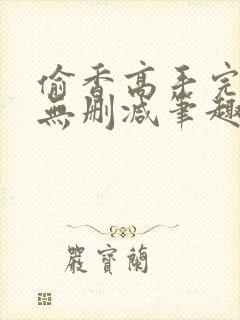 偷香高手完
無刪減筆趣
嚴寶蘭